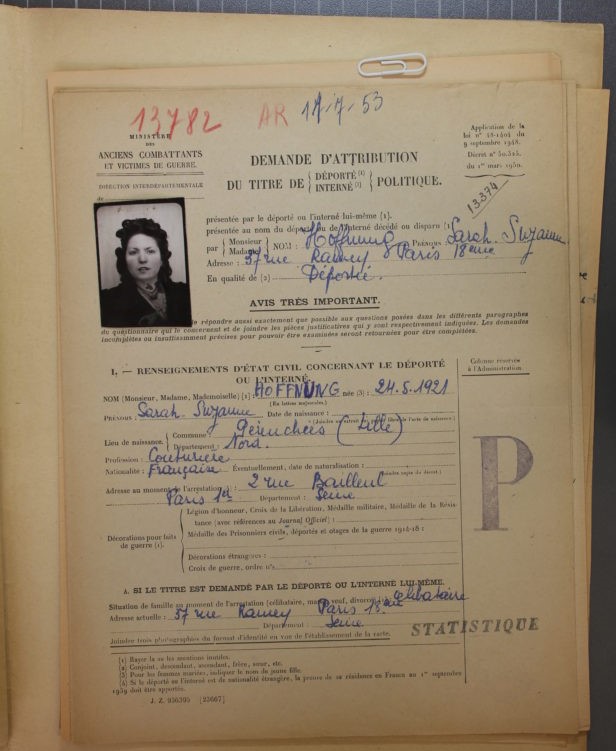 13782 AR 17-7-53
MINISTÈRE
DES
ANCIENS COMBATTANTS
ET VICTIMES DE GUERRE.
DIRECTION INTERDÉPARTEMENTALE
de
Application de la
loi nº 48-1404 du
9 septembre 1948.
Décret nº 50.325
du 1er mars 1950.
DEMANDE D'ATTRIBUTION
DU TITRE DE { DÉPORTÉ (1) INTERNÉ (1) } POLITIQUE.
13374
présentée par le déporté ou l'interné lui-même (1).
présentée au nom du déporté ou de l'interné décédé ou disparu (1)
par { Monsieur Madame } NOM : Hoffnung PRÉNOMS : Sarah. Suzanne
Adresse : 57 rue Ramey Paris 18ème
En qualité de (2) Déportée.
AVIS TRÈS IMPORTANT.
de répondre aussi exactement que possible aux questions posées dans les différents paragraphes
du questionnaire qui le concernent et de joindre les pièces justificatives qui y sont respectivement indiquées. Les demandes
incomplètes ou insuffisamment précises pour pouvoir être examinées seront retournées pour être complétées.
I. — RENSEIGNEMENTS D'ÉTAT CIVIL CONCERNANT LE DÉPORTÉ
OU L'INTERNÉ.
Colonne réservée
à l'Administration
NOM (Monsieur, Madame, Mademoiselle) (1) : HOFFNUNG née (3) : 24.5.1921
(En lettres majuscules.)
PRÉNOMS : Sarah Suzanne Date de naissance :
Lieu de naissance. { Commune : (Lille)
Département : Nord.
Profession : Couturière
Nationalité : Française Éventuellement, date de naturalisation :
(Joindre copie du décret.)
Adresse au moment de l'arrestation : 2 rue Bailleul
Paris 1er Département : Seine
P
Décorations pour faits de guerre (1). { Légion d'honneur, Croix de la Libération, Médaille militaire, Médaille de la Résis-
tance (avec références au Journal Officiel) :
Médaille des Prisonniers civils, déportés et otages de la guerre 1914-18 :
Décorations étrangères :
Croix de guerre, ordre nº
A. SI LE TITRE EST DEMANDÉ PAR LE DÉPORTÉ OU L'INTERNÉ LUI-MÊME.
Situation de famille au moment de l'arrestation (célibataire, marié, veuf, divorcé) (1) : célibataire
Adresse actuelle : 57 rue Ramey Paris 18ème
Département : Seine
STATISTIQUE
Joindre trois photographies du format d'identité en vue de l'établissement de la carte.
(1) Rayer la ou les mentions inutiles.
(2) Conjoint, descendant, ascendant, frère, sœur, etc.
(3) Pour les femmes mariées, indiquer le nom de jeune fille.
(4) Si le déporté ou l'interné est de nationalité étrangère, la preuve de sa résidence en France au 1er septembre
1939 doit être apportée.
J. Z. 936395 [23667]